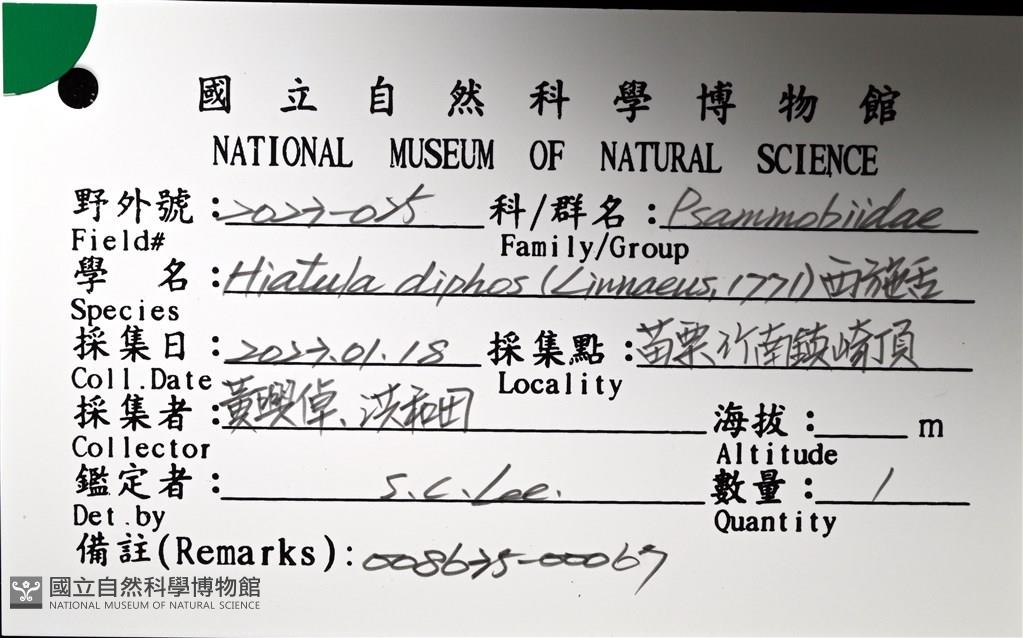 國立自然科學博物館
NATIONAL MUSEUM OF NATURAL SCIENCE
野外號：2023-025 科/群名：Psammobiidae
Field# Family/Group
學 名：Hiatula diphos (Linnaeus, 1771) 西施舌
Species
採集日：2023.01.18 採集點：苗栗竹南鎮崎頂
Coll.Date Locality
採集者：黃興倬、洪和田 海拔：m
Collector Altitude
鑑定者：S.C.Lee. 數量：1
Det.by Quantity
備註(Remarks):
國立自然科學博物館
NATIONAL MUSEUM OF NATURAL SCIENCE